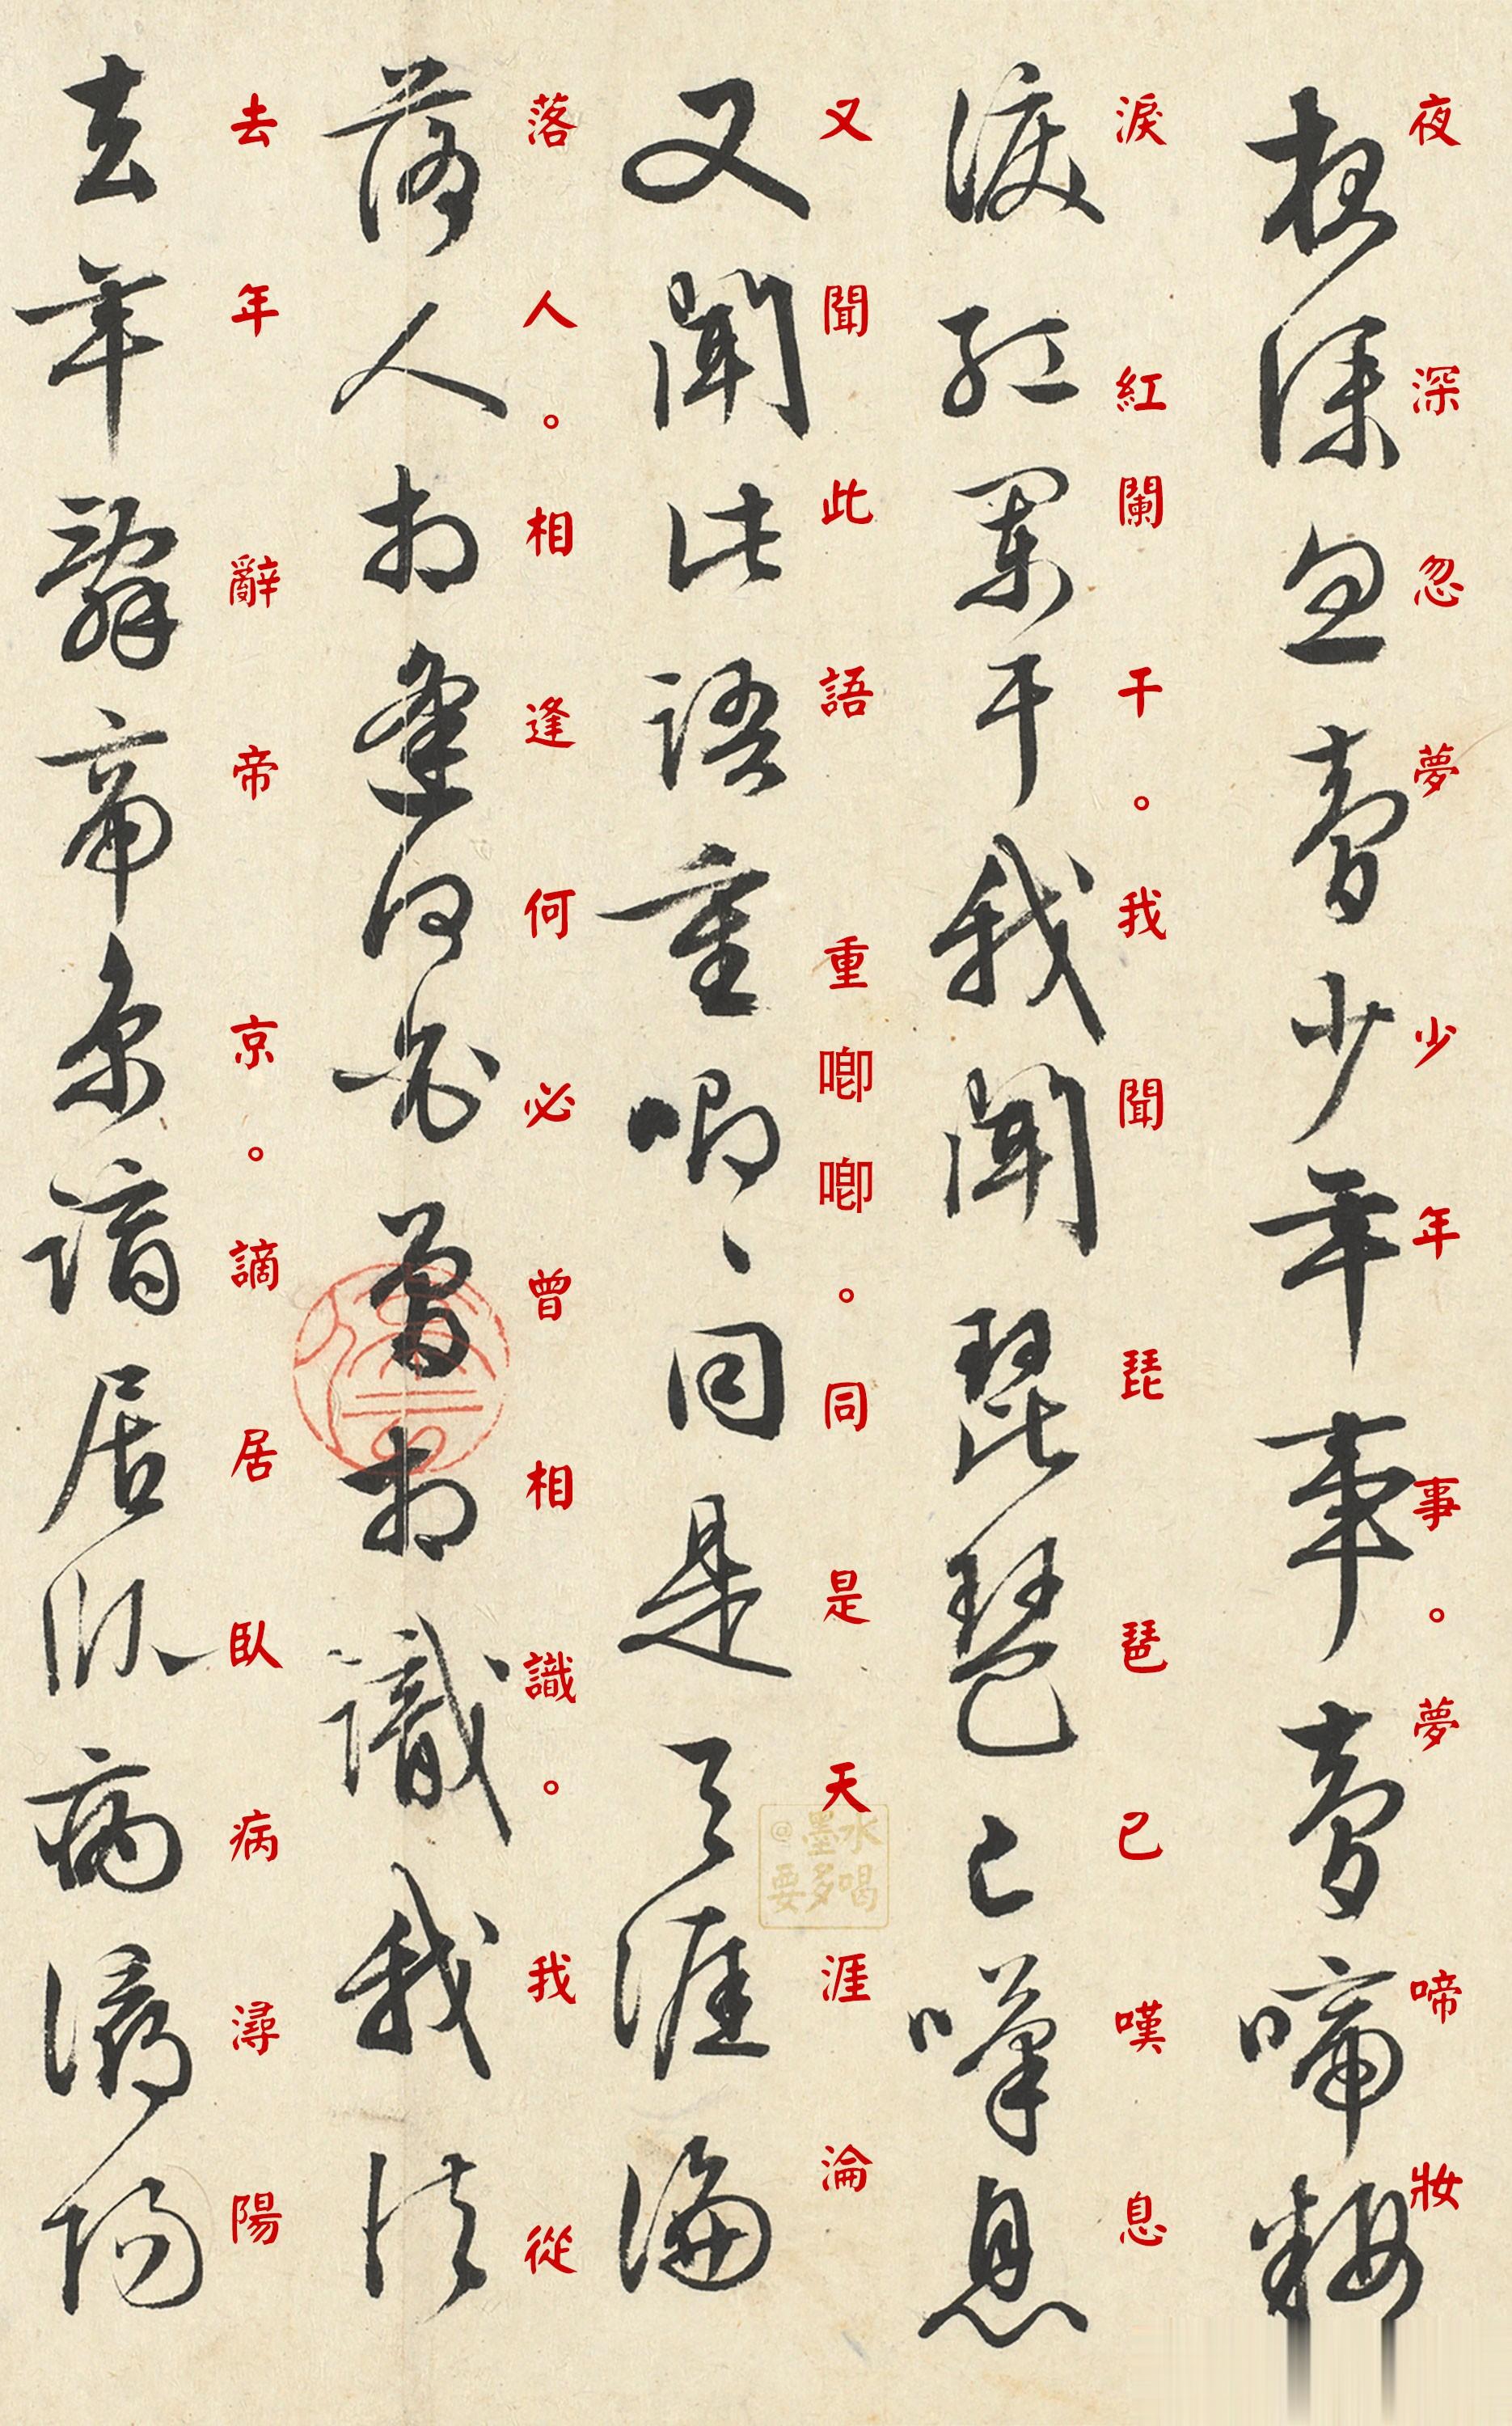 夜深忽夢少年事。夢啼妝
夜深忽夢少年事夢啼粧
淚紅闌干。我聞琵琶已嘆息
淚紅闌干我聞琵琶已嘆息
又聞此語重唧唧。同是天涯淪
又聞此語重唧〻同是天涯淪
落人。相逢何必曾相識。我從
落人相逢何必曾相識我從
去年辭帝京。謫居臥病潯陽
去年辭帝京謫居臥病潯陽
@墨水
要多喝